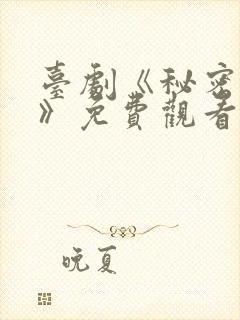 臺劇《秘密
》免費觀看
晚夏